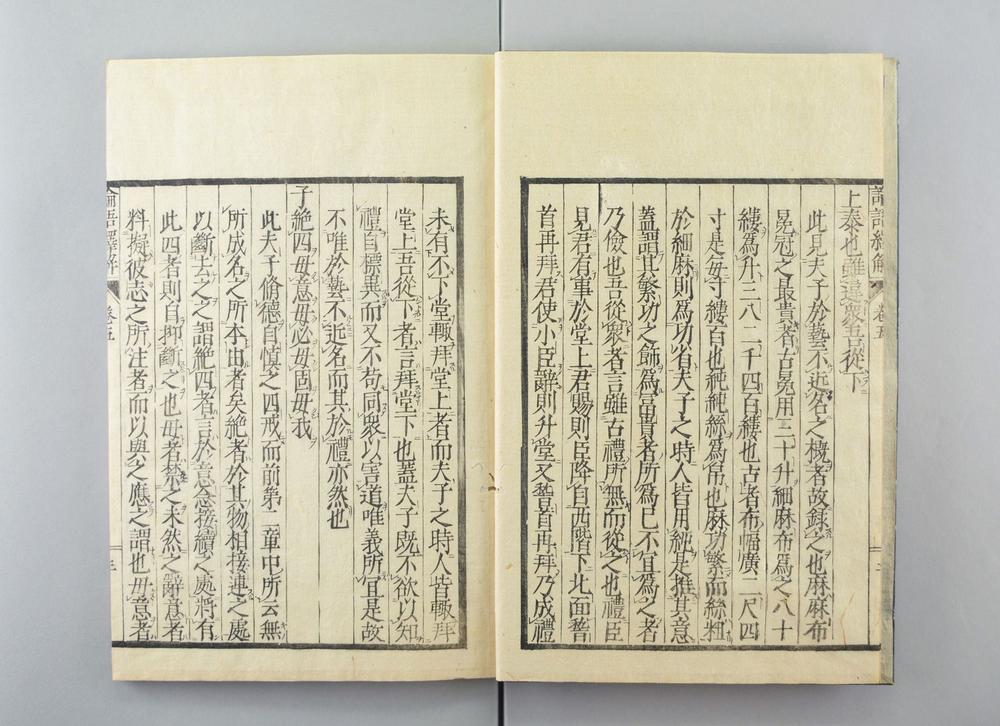 論語繹解 卷五
上泰也雖違衆吾從下
此見夫子於藝不近名之概者故錄之也麻麻布
冕冠之最貴者古冕用三十升細麻布爲之八十
縷爲升三八二千四百縷也古者布幅廣二尺四
寸是每寸縷百也純純絲爲帛也麻功繁而絲粗
於細麻則爲功省夫子之時人皆用純是推其意
蓋謂其繁功之飾爲富貴者所爲已不宜爲之者
乃儉也吾從衆者言雖古禮所無而從之也禮臣
見君有事於堂上君賜則臣降自西階下北面稽
首再拜君使小臣辭則升堂又稽首再拜乃成禮
未有不下堂輒拜堂上者而夫子之時人皆輒拜
堂上吾從下者言拜堂下也蓋夫子既不欲以知
禮自標異而又不苟同衆以害道唯義所宜是故
不唯於藝不近名而其於禮亦然也
子絕四毋意毋必毋固毋我
此夫子脩德自慎之四戒而前第二章中所云無
所成名之所本由者矣絕者於其物相接連之處
以斷去之之謂絕四者言於意念接續之處將有
此四者則自抑斷之也毋者禁之未然之辭意者
料擬彼志之所注者而以與之應之謂也毋意者
論語繹解 卷五 三